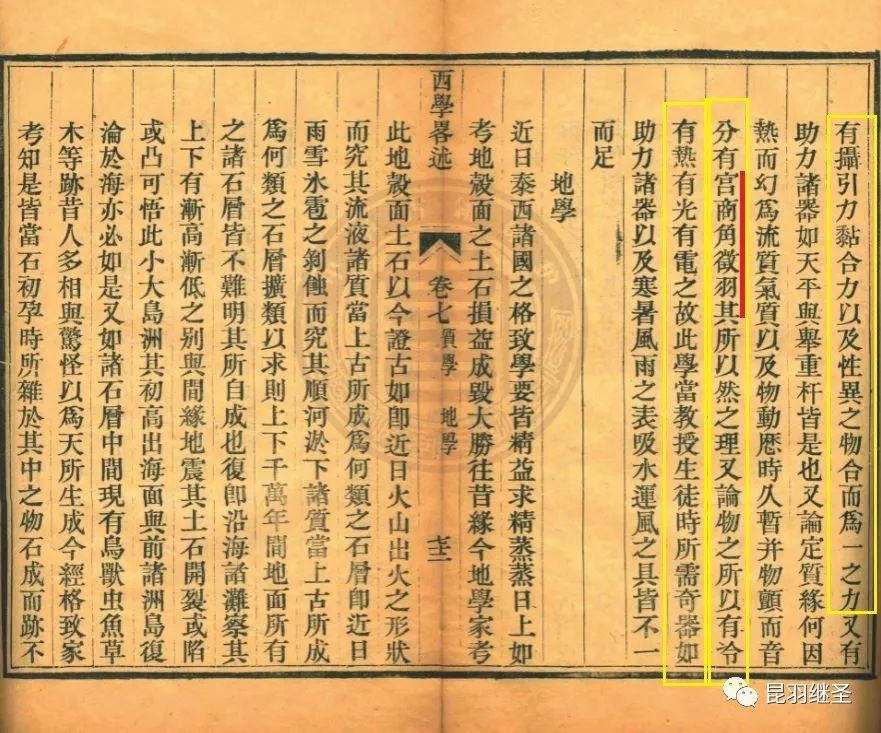 有攝引力黏合力以及性異之物合而爲一之力又有
助力諸器如天平與舉重杆皆是也又論定質緣何因
熱而幻爲流質氣質以及物動厯時久暫并物顫而音
分有宫商角徵羽其所以然之理又論物之所以有冷
有熱有光有電之故此學當教授生徒時所需奇器如
助力諸器以及寒暑風雨之表吸水運風之具皆不一
而足
地學
近日泰西諸國之格致學要皆精益求精蒸蒸日上如
考地殼面之土石損益成毀大勝往昔緣今地學家考
西學畧述
卷七 質學 地學
七三
此地殼面土石以今證古如卽近日火山出火之形狀
而究其流液諸質當上古所成爲何類之石層卽近日
雨雪氷雹之剝蝕而究其順河淤下諸質當上古所成
爲何類之石層擴類以求則上下千萬年間地面所有
之諸石層皆不難明其所自成也復卽沿海諸灘察其
上下有漸高漸低之别與間緣地震其土石開裂或陷
或凸可悟此小大島洲其初高出海面與前諸洲島復
淪於海亦必如是又如諸石層中間現有鳥獸虫魚草
木等跡昔人多相與驚怪以爲天所生成今經格致家
考知是皆當石初孕時所雜於其中之物石成而跡不
昆羽继圣